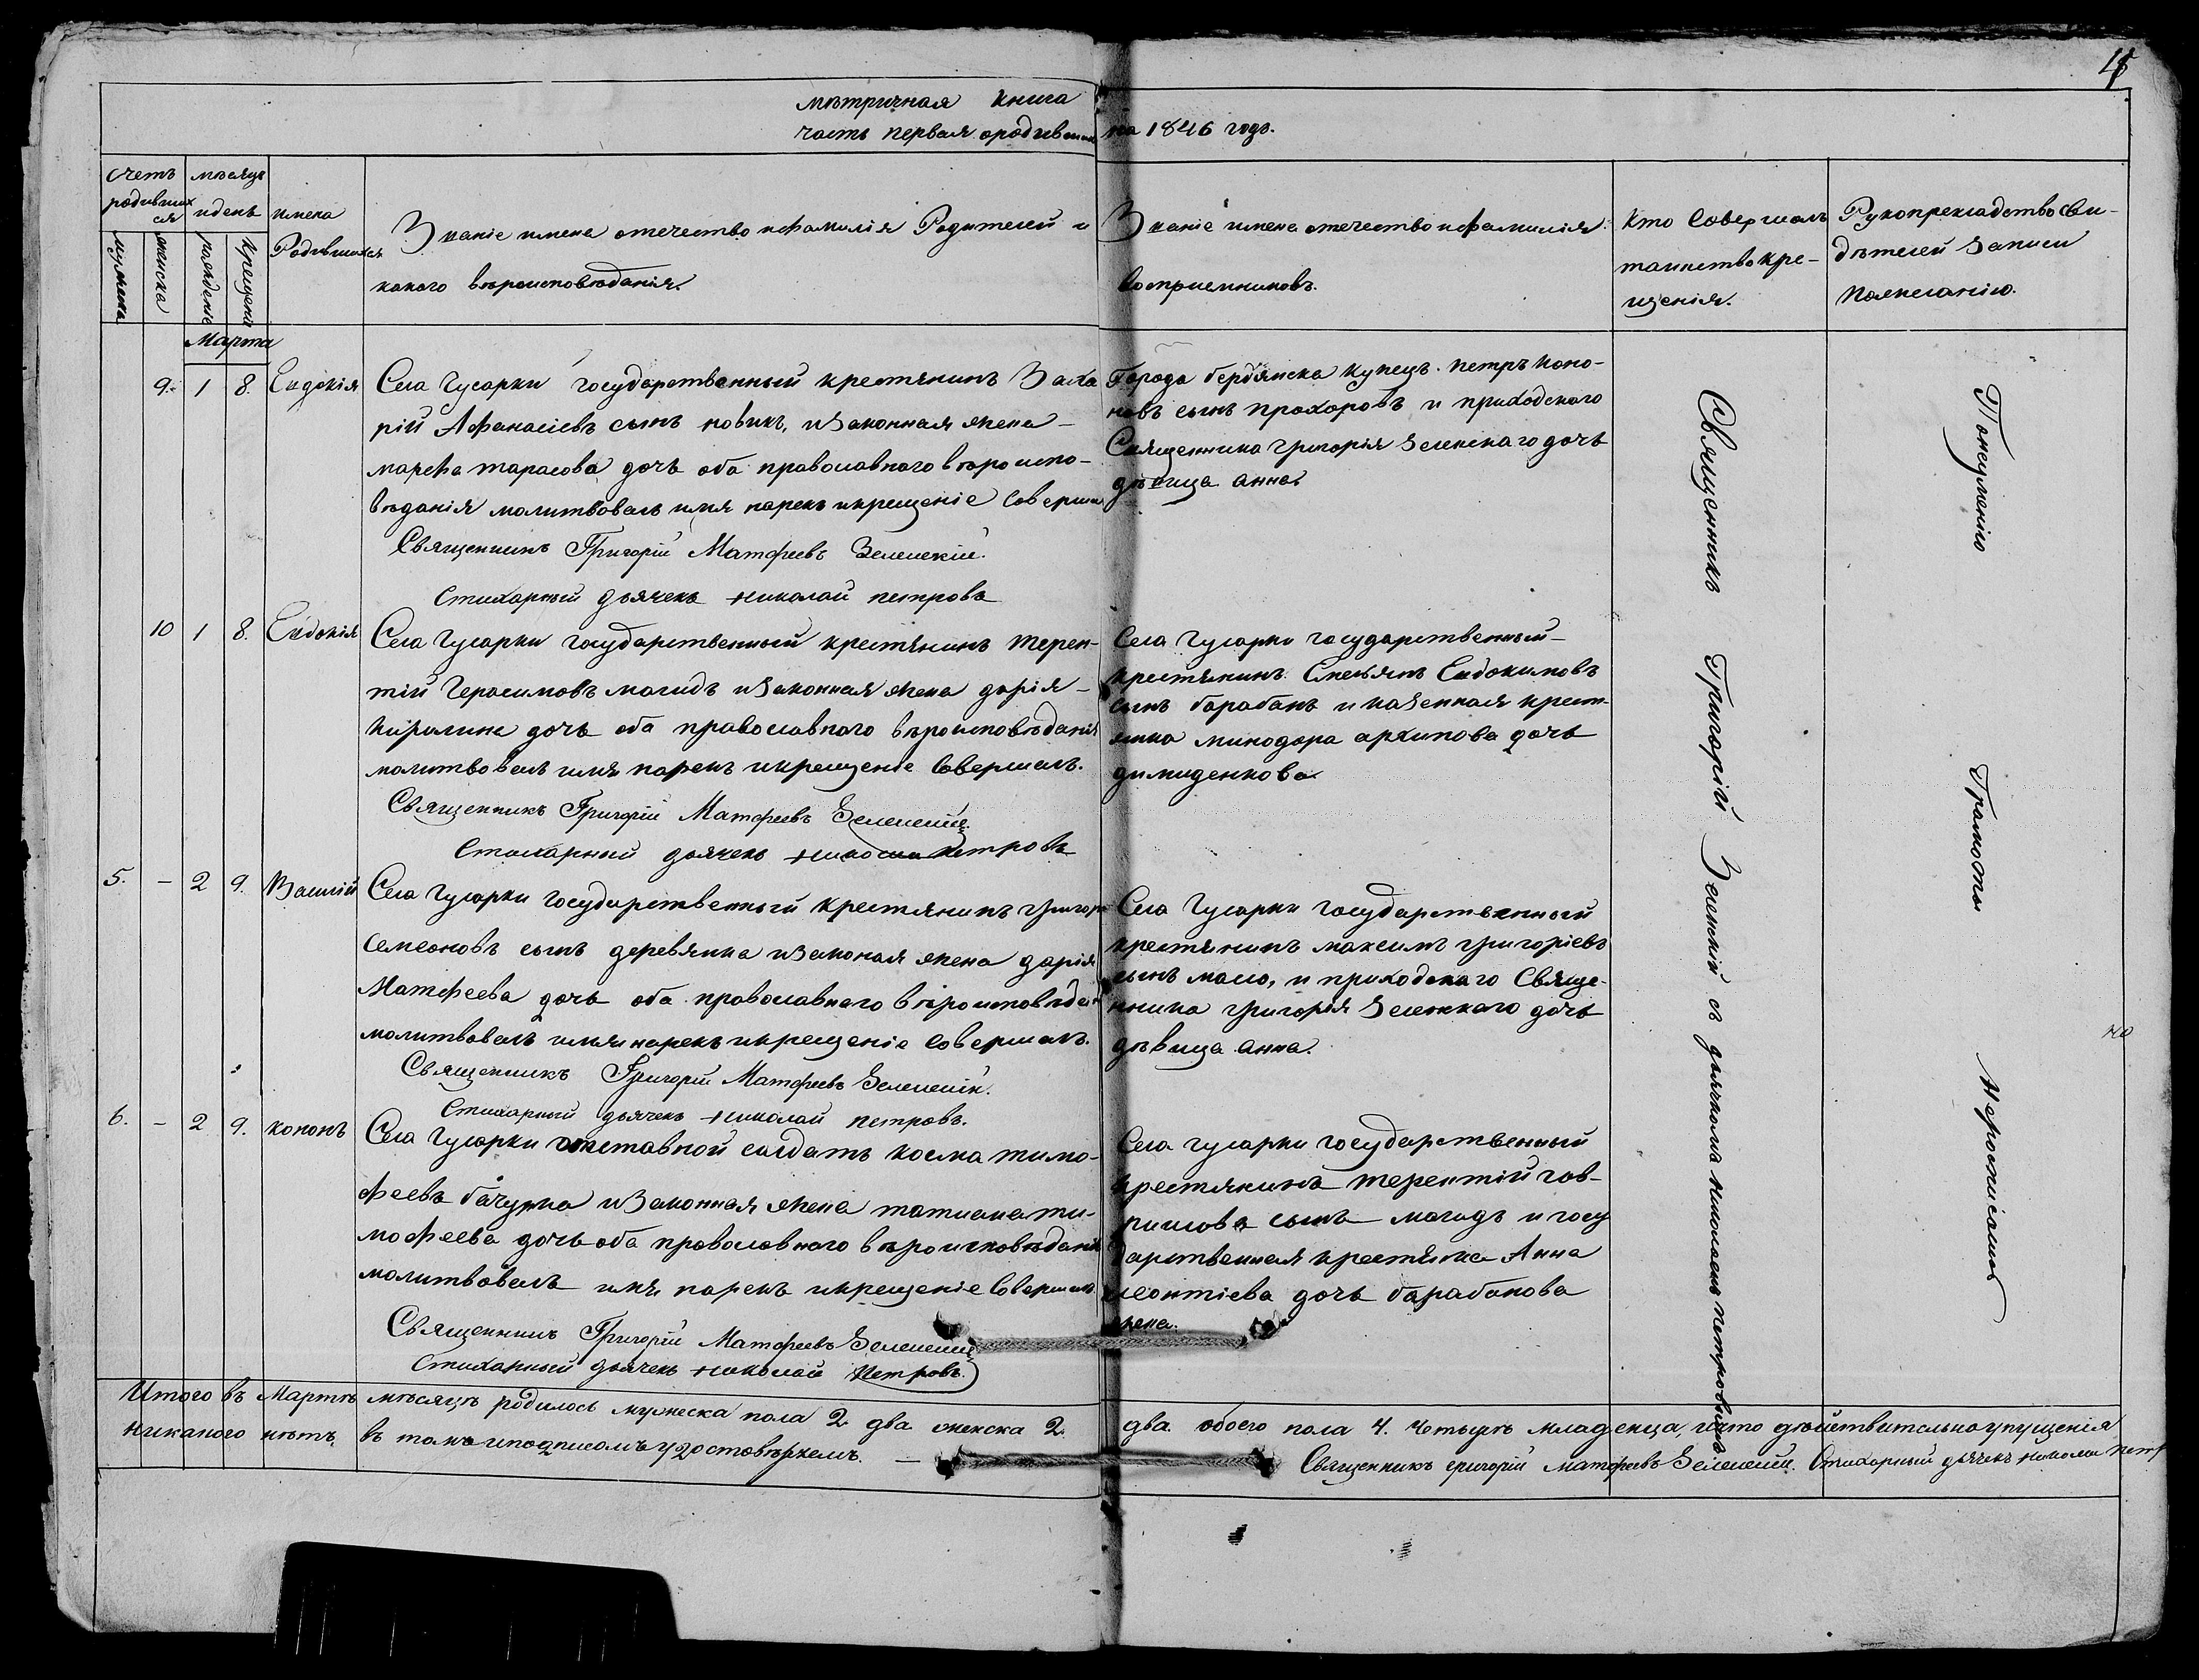 18
мѣтричная книга на 1846 годъ.
часть первая ородившихся
счетъ родившихся
мужеска
женска
мѣсяцъ идень
рожденіе
крещеніе
имена Родившихся
Званіе имена отечество ифамилія Родителей и
какого вѣроисповѣданія.
Званіе имена отечество ифамилія
воспріемниковъ.
Кто Совершалъ
таинствокре-
щенія.
Рукоприкладство Сви-
дѣтелей Записи
Пожеланію.
Марта
9. 1 8. Евдокія
Села Гусарки государственный крестянинъ Заха
рій Афанасіевъ сынъ новикъ, изаконная жена
марфа тарасова дочь оба православнаго вѣроиспо-
вѣданія молитвовалъ имя нарекъ икрещеніе Соверша
Священникъ Григорій Матфеевъ Зеленскій.
Стихарный дьячекъ николай петровъ
Города бердянска Купецъ петръ Коно-
новъ сынъ прохоровъ и приходского
Священника григорія Зеленскаго дочь
дѣвица анна.
10 1 8. Евдокія
Села Гусарки Государственный крестянинъ терен-
тій Герасимовъ магидъ изаконная жена дарія
Кирилина дочь оба православнаго вѣроисповѣданія
молитвовалъ имя нарекъ икрещеніе Совершалъ.
Священникъ Григорій Матфеевъ Зеленскій
Стихарный дьячекъ николай петровъ
Села Гусарки государственный
крестянинъ Емельянъ Евдокимовъ
сынъ барабанъ и казенная крест-
янка минодора архипова дочь
димиденкова
5. — 2 9. Василій
Села Гусарки государственный крестянинъ григорі
Семеоновъ сынъ деревянка изаконая жена дарія
Матфеева дочь оба православнаго вѣроисповѣдан
молитвовалъ имя нарекъ икрещеніе совершалъ.
Священникъ Григорій Матфеевъ Зеленскій.
Стихарный дьячекъ николай петровъ.
Села Гусарки Государственный
крестянинъ максимъ григоріевъ
сынъ мало, и приходскаго Свяще-
нника григорія Зеленскаго дочь
дѣвица анна.
6. — 2 9. кононъ
Села Гусарки отставной салдатъ косма тимо-
феевъ бачурка изаконная жена татиана ти-
мофеева дочь оба православнаго вѣроисповѣданія
молитвовалъ имя нарекъ икрещеніе Совершалъ
Священникъ Григорій Матфеевъ Зеленскій
Стихарный дьячекъ николай Петровъ.
Села гусарки Государственный
крестянинъ терентій гав-
риловъ сынъ магидъ и госу
дарственная крестянка Анна
леонтіева дочь барабанова
жена.
Священникъ Григорій Зеленскій съ дьячкомъ николаемъ петровымъ
Понеумѣнію Грамоты неросписались
Итого въ Мартѣ мѣсяцѣ родилось мужеска пола 2 два женска 2. два обоего пола 4. Четырѣ младенца, ичто дѣйствительноупущенія
никакого нѣтъ, въ томъ иподписомъ удостовѣряемъ. — Священникъ григорій Матфеевъ Зеленскій. Стихарный дьячекъ николай петр